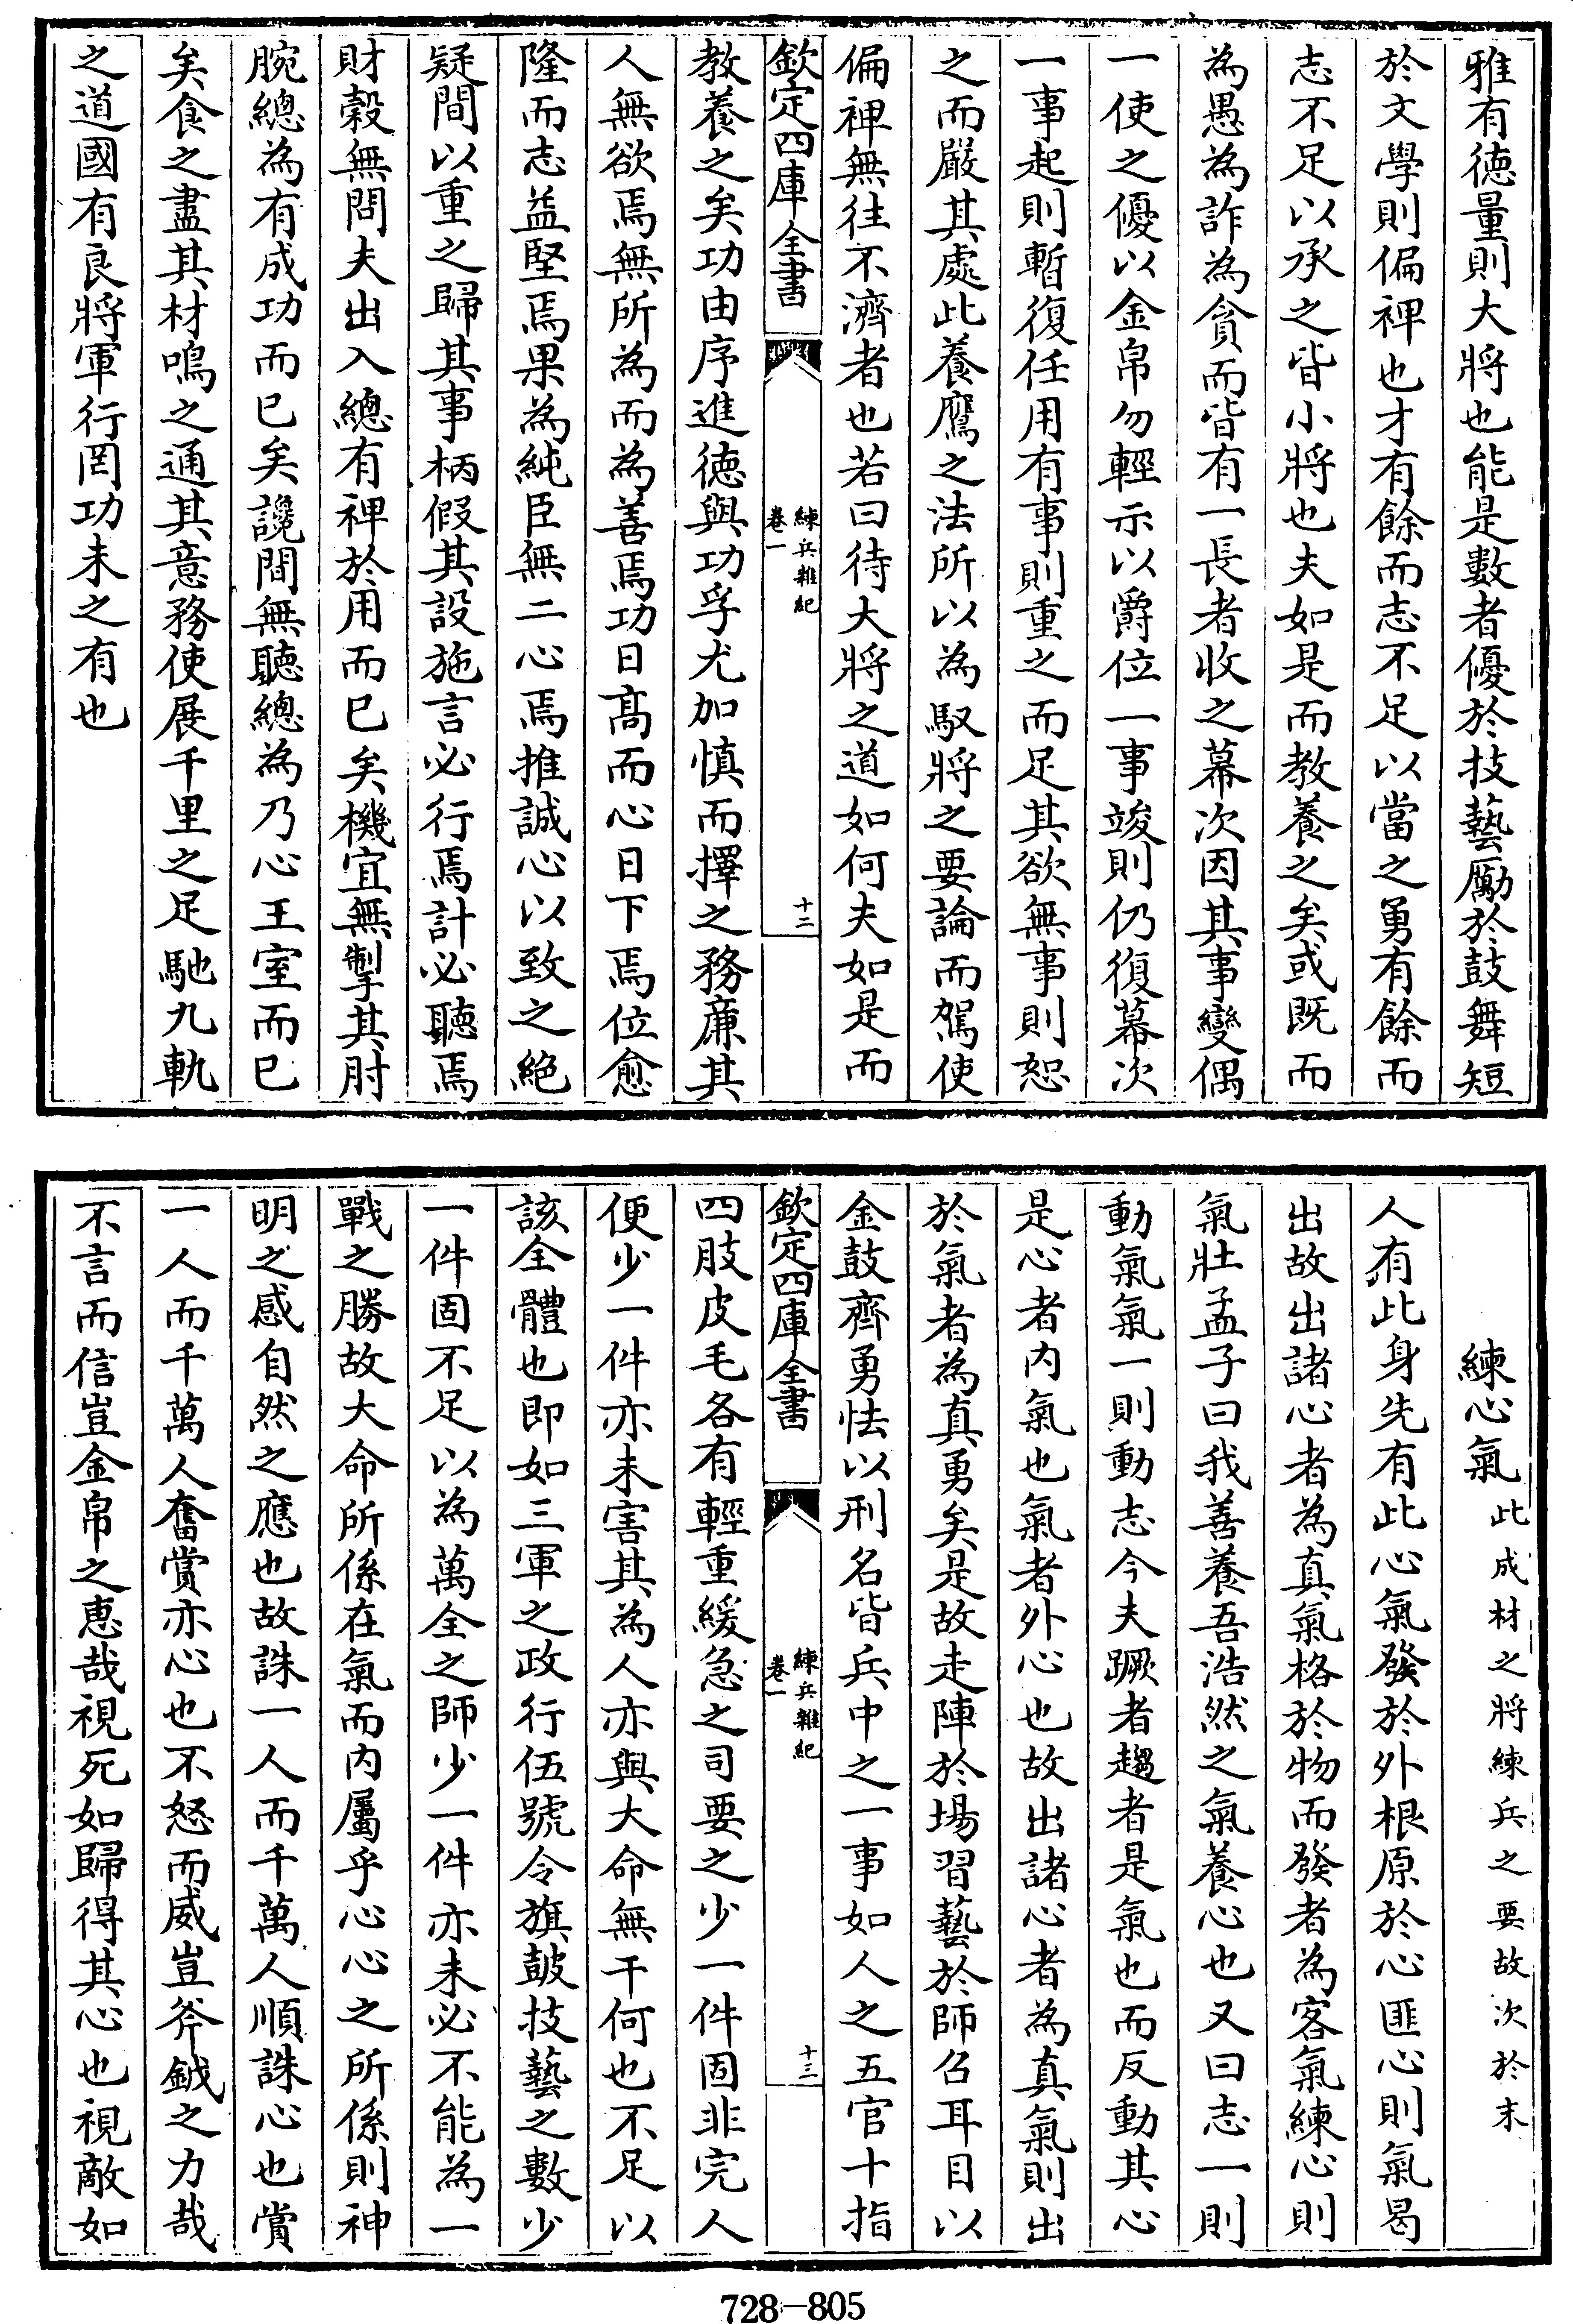 雅有徳量則大將也能是數者優於技藝勵於鼓舞短
於文學則偏裨也才有餘而志不足以當之勇有餘而
志不足以承之皆小將也夫如是而教養之矣或既而
為愚為詐為貪而皆有一長者收之幕次因其事變偶
一使之優以金帛勿輕示以爵位一事竣則仍復幕次
一事起則暫復任用有事則重之而足其欲無事則恕
之而嚴其處此養鷹之法所以為馭將之要論而駕使
偏裨無往不濟者也若曰待大將之道如何夫如是而
欽定四庫全書
練兵雜紀
卷一
十二
教養之矣功由序進徳與功孚尤加慎而擇之務亷其
人無欲焉無所為而為善焉功日髙而心日下焉位愈
隆而志益堅焉果為純臣無二心焉推誠心以致之絶
疑間以重之歸其事柄假其設施言必行焉計必聽焉
財榖無問夫出入總有裨於用而已矣機宜無掣其肘
腕總為有成功而已矣讒間無聽總為乃心王室而已
矣食之盡其材鳴之通其意務使展千里之足馳九軌
之道國有良將軍行罔功未之有也
練心氣此成材之將練兵之要故次於末
人有此身先有此心氣發於外根原於心匪心則氣曷
出故出諸心者為真氣格於物而發者為客氣練心則
氣壯孟子曰我善養吾浩然之氣養心也又曰志一則
動氣氣一則動志今夫蹶者趨者是氣也而反動其心
是心者内氣也氣者外心也故出諸心者為真氣則出
於氣者為真勇矣是故走陣於場習藝於師召耳目以
金鼓齊勇怯以刑名皆兵中之一事如人之五官十指
欽定四庫全書
練兵雜紀
卷一
十三
四肢皮毛各有輕重緩急之司要之少一件固非完人
便少一件亦未害其為人亦與大命無干何也不足以
該全體也即如三軍之政行伍號令旗皷技藝之數少
一件固不足以為萬全之師少一件亦未必不能為一
戰之勝故大命所係在氣而内屬乎心心之所係則神
明之感自然之應也故誅一人而千萬人順誅心也賞
一人而千萬人奮賞亦心也不怒而威豈斧鉞之力哉
不言而信豈金帛之惠哉視死如歸得其心也視敵如
728-805